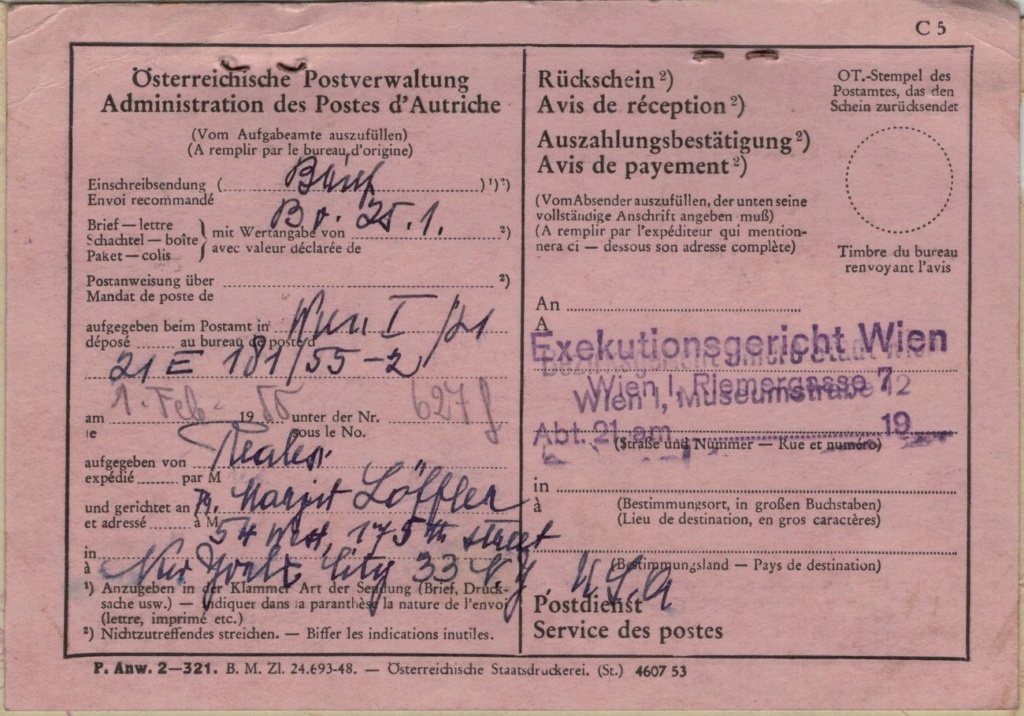 C 5
Österreichische Postverwaltung
Administration des Postes d'Autriche
(Vom Aufgabeamte auszufüllen)
(A remplir par le bureau d'origine)
Einschreibsendung ( Brief )¹)²)
Envoi recommandé
Br. 25.1.
Brief — lettre
Schachtel — boîte
Paket — colis
mit Wertangabe von ²)
avec valeur déclarée de
Postanweisung über ²)
Mandat de poste de
aufgegeben beim Postamt in Wien I /21
déposé au bureau de poste d
21 E 181/55-2
am 1. Feb. 19 55 unter der Nr. 627
le sous le No.
aufgegeben von
expédié par M
und gerichtet an Margit Löffler
et adressé à M
54 West, 175th street
in New York City 33 N Y USA
à
¹) Anzugeben in der Klammer Art der Sendung (Brief, Druck-
sache usw.) — Indiquer dans la paranthèse la nature de l'envoi
(lettre, imprimé etc.)
²) Nichtzutreffendes streichen. — Biffer les indications inutiles.
Rückschein ²)
Avis de réception ²)
Auszahlungsbestätigung ²)
Avis de payement ²)
(Vom Absender auszufüllen, der unten seine
vollständige Anschrift angeben muß)
(A remplir par l'expéditeur qui mention-
nera ci — dessous son adresse complète)
OT.-Stempel des
Postamtes, das den
Schein zurücksendet
Timbre du bureau
renvoyant l'avis
An
A
Exekutionsgericht Wien
Wien I, Riemergasse 7
Wien I, Museumstraße 12
Abt. 21 am 19
(Straße und Nummer — Rue et numéro)
in
à
(Bestimmungsort, in großen Buchstaben)
(Lieu de destination, en gros caractères)
(Bestimmungsland — Pays de destination)
Postdienst
Service des postes
P. Anw. 2—321. B. M. Zl. 24.693-48. — Österreichische Staatsdruckerei. (St.) 4607 53